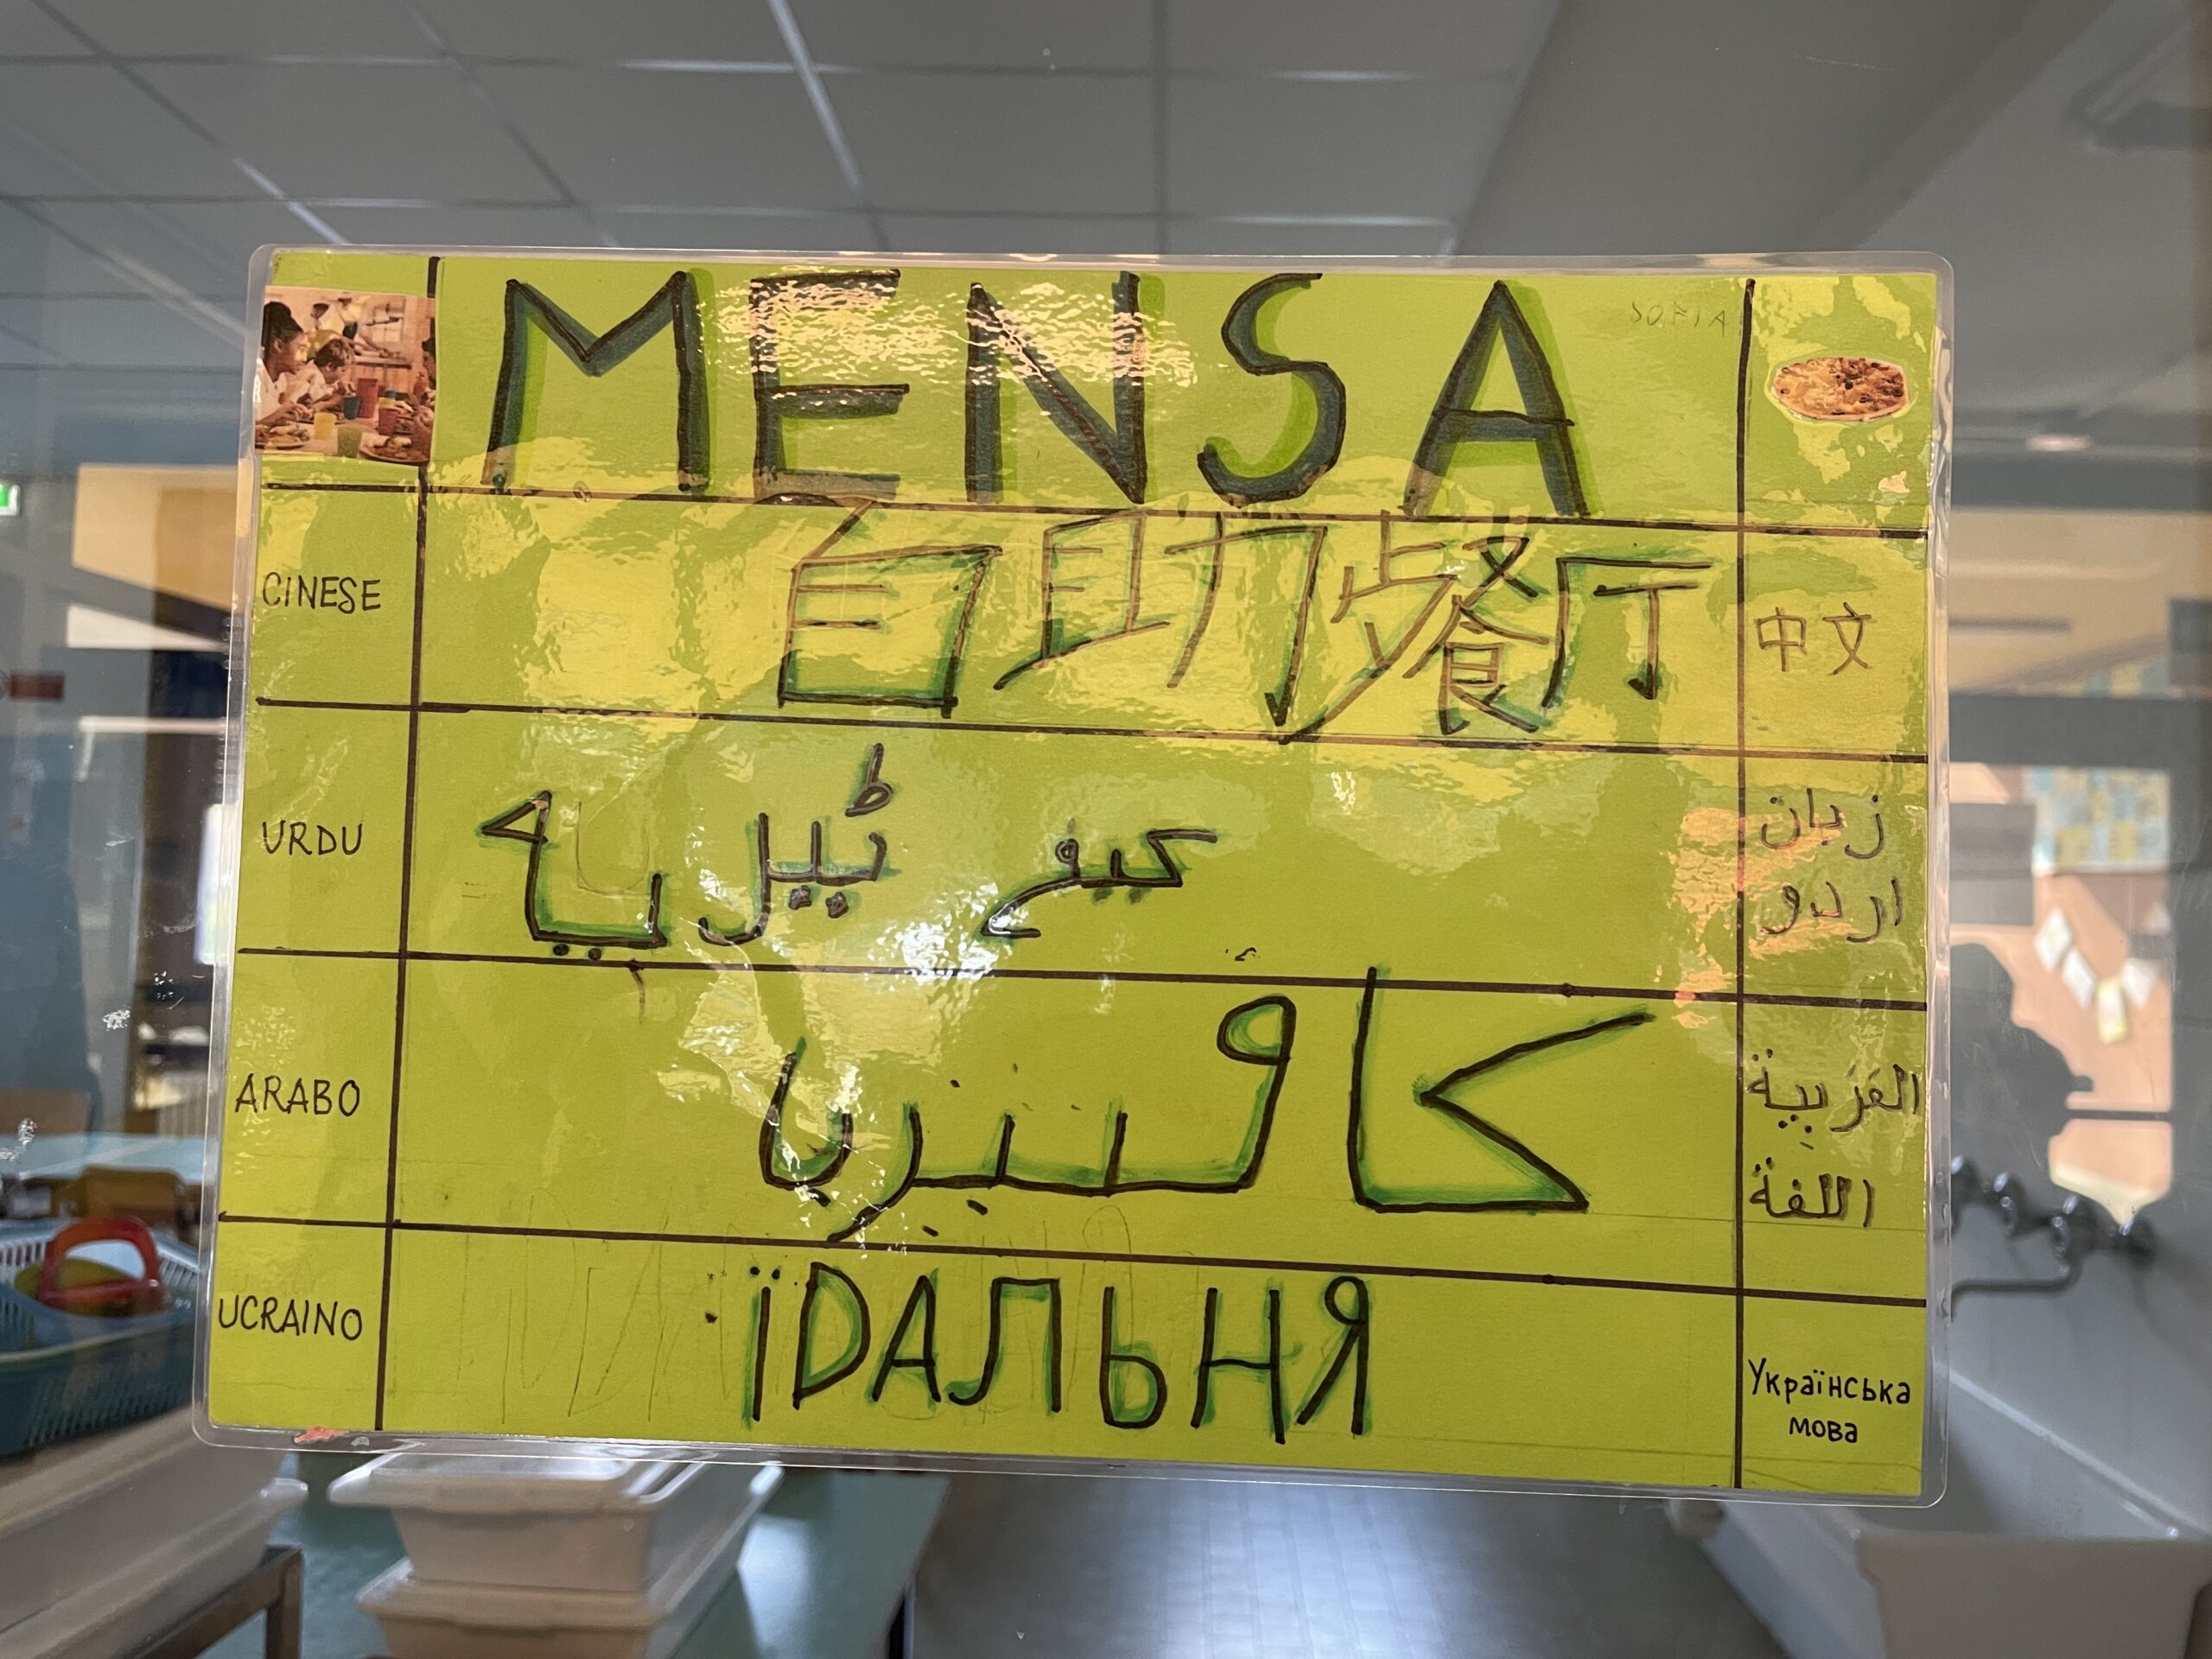 MENSA
SOFIA
CINESE 自助餐厅 中文
URDU کیفے ٹیل یہ زبان
اردو
ARABO كافىىريا العَرَبِية
اللغة
UCRAINO ЇDАЛЬНЯ Українська
мова